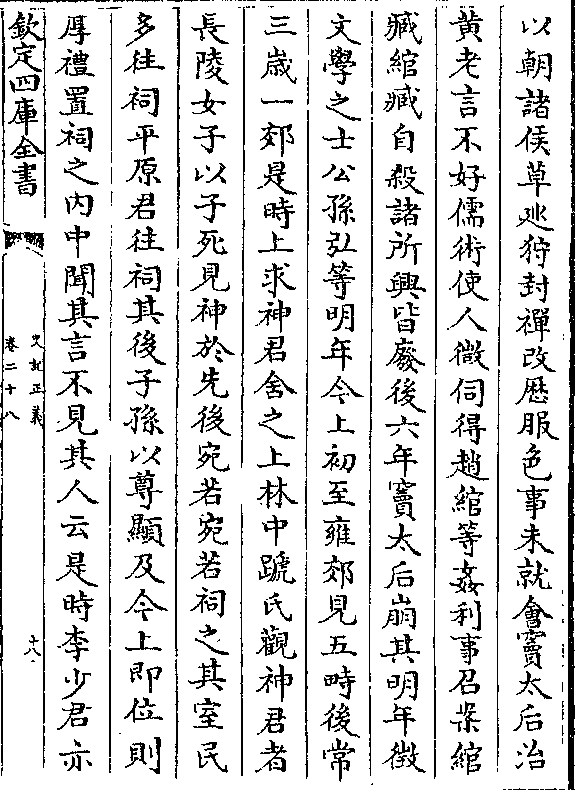 以朝諸侯草廵狩封禪改歴服色事未就會竇太后治
黄老言不好儒術使人微伺得趙綰等姦利事召案綰
臧綰臧自殺諸所興皆廢後六年竇太后崩其明年徴
文學之士公孫弘等明年今上初至雍郊見五畤後常
三歳一郊是時上求神君舍之上林中蹏氏觀神君者
長陵女子以子死見神於先後宛若宛若祠之其室民
多往祠平原君往祠其後子孫以尊顯及今上即位則
厚禮置祠之内中聞其言不見其人云是時李少君亦
欽定四庫全書
史記正義
卷二十八
十八